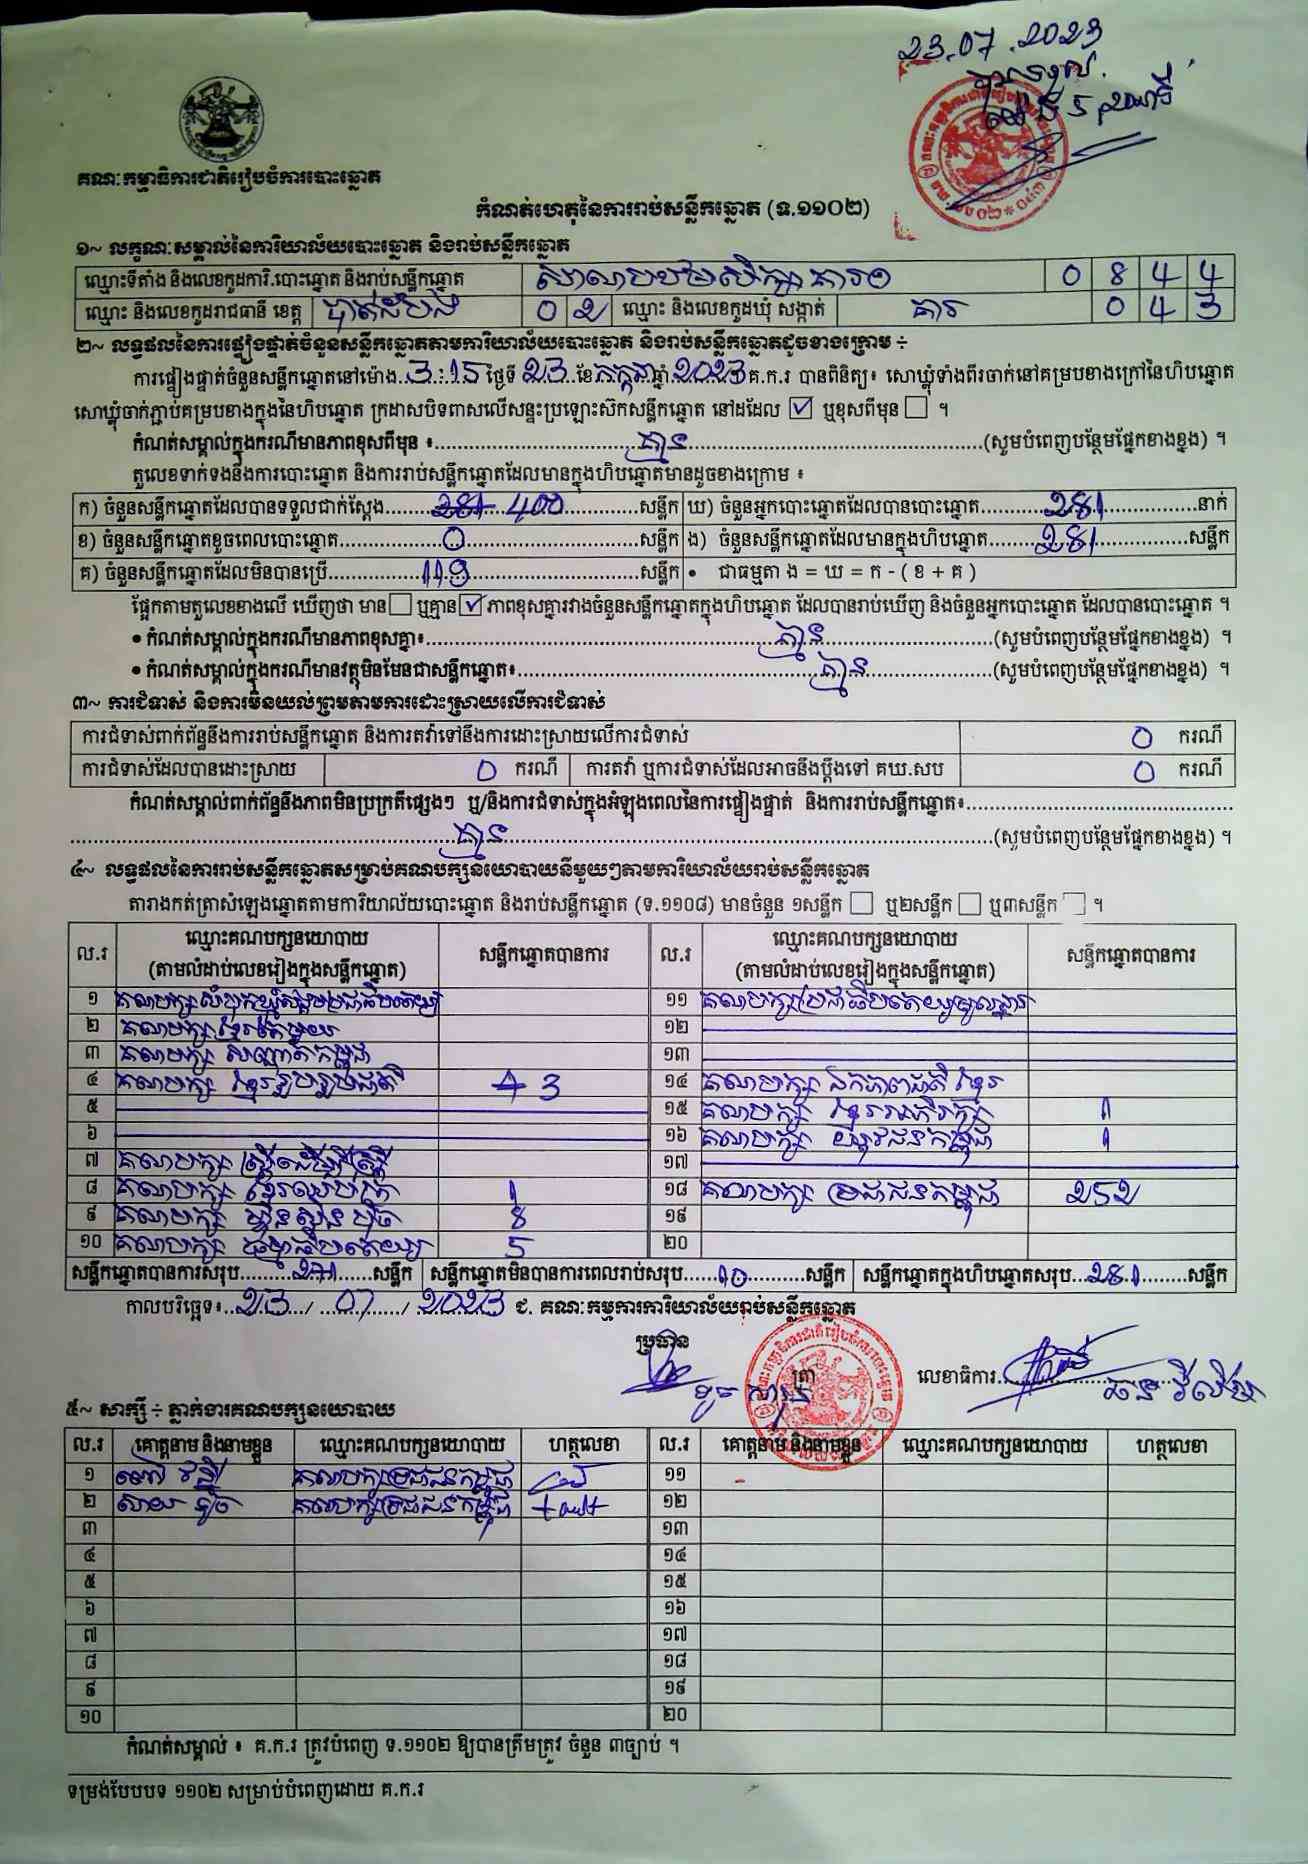 23.07.2023
គណៈកម្មាធិការជាតិរៀបចំការបោះឆ្នោត
កំណត់ហេតុនៃការរាប់សន្លឹកឆ្នោត (ទ.១១០២)
១~ លក្ខណៈសម្គាល់នៃការិយាល័យបោះឆ្នោត និងរាប់សន្លឹកឆ្នោត
ឈ្មោះទីតាំង និងលេខកូដការិ.បោះឆ្នោត និងរាប់សន្លឹកឆ្នោត សាលាបឋមសិក្សា តារា១ 0 8 4 4
ឈ្មោះ និងលេខកូដរាជធានី ខេត្ត បាត់ដំបង 0 2 ឈ្មោះ និងលេខកូដឃុំ សង្កាត់ 0 4 3
២~ លទ្ធផលនៃការផ្ទៀងផ្ទាត់ចំនួនសន្លឹកឆ្នោតតាមការិយាល័យបោះឆ្នោត និងរាប់សន្លឹកឆ្នោតដូចខាងក្រោម ÷
ការផ្ទៀងផ្ទាត់ចំនួនសន្លឹកឆ្នោតនៅម៉ោង 3:15 ថ្ងៃទី 23 ខែ កក្កដា ឆ្នាំ 2023 គ.ក.រ បានពិនិត្យ៖ សោឃ្លុំទាំងពីរចាក់នៅគម្របខាងក្រៅនៃហិបឆ្នោត
សោឃ្លុំចាក់ភ្ជាប់គម្របខាងក្នុងនៃហិបឆ្នោត ក្រដាសបិទពាសលើសន្ទះប្រឡោះស៊កសន្លឹកឆ្នោត នៅដដែល ☑ ឬខុសពីមុន ☐ ។
កំណត់សម្គាល់ក្នុងករណីមានភាពខុសពីមុន ៖ គ្មាន (សូមបំពេញបន្ថែមផ្នែកខាងខ្នង) ។
តួលេខទាក់ទងនឹងការបោះឆ្នោត និងការរាប់សន្លឹកឆ្នោតដែលមានក្នុងហិបឆ្នោតមានដូចខាងក្រោម ៖
ក) ចំនួនសន្លឹកឆ្នោតដែលបានទទួលជាក់ស្តែង 281 400 សន្លឹក ឃ) ចំនួនអ្នកបោះឆ្នោតដែលបានបោះឆ្នោត 281 នាក់
ខ) ចំនួនសន្លឹកឆ្នោតខូចពេលបោះឆ្នោត 0 សន្លឹក ង) ចំនួនសន្លឹកឆ្នោតដែលមានក្នុងហិបឆ្នោត 281 សន្លឹក
គ) ចំនួនសន្លឹកឆ្នោតដែលមិនបានប្រើ 119 សន្លឹក • ជាធម្មតា ង = ឃ = ក - ( ខ + គ )
ផ្អែកតាមតួលេខខាងលើ ឃើញថា មាន ☐ ឬគ្មាន ☑ ភាពខុសគ្នារវាងចំនួនសន្លឹកឆ្នោតក្នុងហិបឆ្នោត ដែលបានរាប់ឃើញ និងចំនួនអ្នកបោះឆ្នោត ដែលបានបោះឆ្នោត ។
• កំណត់សម្គាល់ក្នុងករណីមានភាពខុសគ្នា៖ គ្មាន (សូមបំពេញបន្ថែមផ្នែកខាងខ្នង) ។
• កំណត់សម្គាល់ក្នុងករណីមានវត្ថុមិនមែនជាសន្លឹកឆ្នោត៖ គ្មាន (សូមបំពេញបន្ថែមផ្នែកខាងខ្នង) ។
៣~ ការជំទាស់ និងការមិនយល់ព្រមតាមការដោះស្រាយលើការជំទាស់
ការជំទាស់ពាក់ព័ន្ធនឹងការរាប់សន្លឹកឆ្នោត និងការតវ៉ាទៅនឹងការដោះស្រាយលើការជំទាស់ 0 ករណី
ការជំទាស់ដែលបានដោះស្រាយ 0 ករណី ការតវ៉ា ឬការជំទាស់ដែលអាចនឹងប្តឹងទៅ គឃ.សប 0 ករណី
កំណត់សម្គាល់ពាក់ព័ន្ធនឹងភាពមិនប្រក្រតីផ្សេងៗ ឬ/និងការជំទាស់ក្នុងអំឡុងពេលនៃការផ្ទៀងផ្ទាត់ និងការរាប់សន្លឹកឆ្នោត៖
គ្មាន (សូមបំពេញបន្ថែមផ្នែកខាងខ្នង) ។
៤~ លទ្ធផលនៃការរាប់សន្លឹកឆ្នោតសម្រាប់គណបក្សនយោបាយនីមួយៗតាមការិយាល័យរាប់សន្លឹកឆ្នោត
តារាងកត់ត្រាសំឡេងឆ្នោតតាមការិយាល័យបោះឆ្នោត និងរាប់សន្លឹកឆ្នោត (ទ.១១០៨) មានចំនួន ១សន្លឹក ☐ ឬ២សន្លឹក ☐ ឬ៣សន្លឹក ☐ ។
ល.រ ឈ្មោះគណបក្សនយោបាយ (តាមលំដាប់លេខរៀងក្នុងសន្លឹកឆ្នោត) សន្លឹកឆ្នោតបានការ ល.រ ឈ្មោះគណបក្សនយោបាយ (តាមលំដាប់លេខរៀងក្នុងសន្លឹកឆ្នោត) សន្លឹកឆ្នោតបានការ
១ គណបក្សសំបុកឃ្មុំសង្គមប្រជាធិបតេយ្យ ១១ គណបក្សប្រជាធិបតេយ្យមូលដ្ឋាន
២ គណបក្សខ្មែរតែមួយ ១២
៣ គណបក្ស សញ្ជាតិកម្ពុជា ១៣
៤ គណបក្ស ខ្មែររួបរួមជាតិ 4 3 ១៤ គណបក្ស ឯកភាពជាតិ ខ្មែរ
៥ ១៥ គណបក្ស ខ្មែរអភិរក្ស 1
៦ ១៦ គណបក្ស យុវជនកម្ពុជា 1
៧ គណបក្ស ស្រ្តីដើម្បីស្រ្តី ១៧
៨ គណបក្ស ខ្មែរឈប់ក្រ 1 ១៨ គណបក្ស ប្រជាជនកម្ពុជា 252
៩ គណបក្ស ហ៊្វុនស៊ិនប៉ិច 8 ១៩
១០ គណបក្ស ធម្មាធិបតេយ្យ 5 ២០
សន្លឹកឆ្នោតបានការសរុប 271 សន្លឹក សន្លឹកឆ្នោតមិនបានការពេលរាប់សរុប 10 សន្លឹក សន្លឹកឆ្នោតក្នុងហិបឆ្នោតសរុប 281 សន្លឹក
កាលបរិច្ឆេទ៖ 23 / 07 / 2023 ជ. គណៈកម្មការការិយាល័យរាប់សន្លឹកឆ្នោត
ប្រធាន
ត្រា លេខាធិការ
៥~ សាក្សី ÷ ភ្នាក់ងារគណបក្សនយោបាយ
ល.រ គោត្តនាម និងនាមខ្លួន ឈ្មោះគណបក្សនយោបាយ ហត្ថលេខា ល.រ គោត្តនាម និងនាមខ្លួន ឈ្មោះគណបក្សនយោបាយ ហត្ថលេខា
១ គណបក្សប្រជាជនកម្ពុជា ១១
២ គណបក្សប្រជាជនកម្ពុជា ១២
៣ ១៣
៤ ១៤
៥ ១៥
៦ ១៦
៧ ១៧
៨ ១៨
៩ ១៩
១០ ២០
កំណត់សម្គាល់ ៖ គ.ក.រ ត្រូវបំពេញ ទ.១១០២ ឱ្យបានត្រឹមត្រូវ ចំនួន ៣ច្បាប់ ។
ទម្រង់បែបបទ ១១០២ សម្រាប់បំពេញដោយ គ.ក.រ